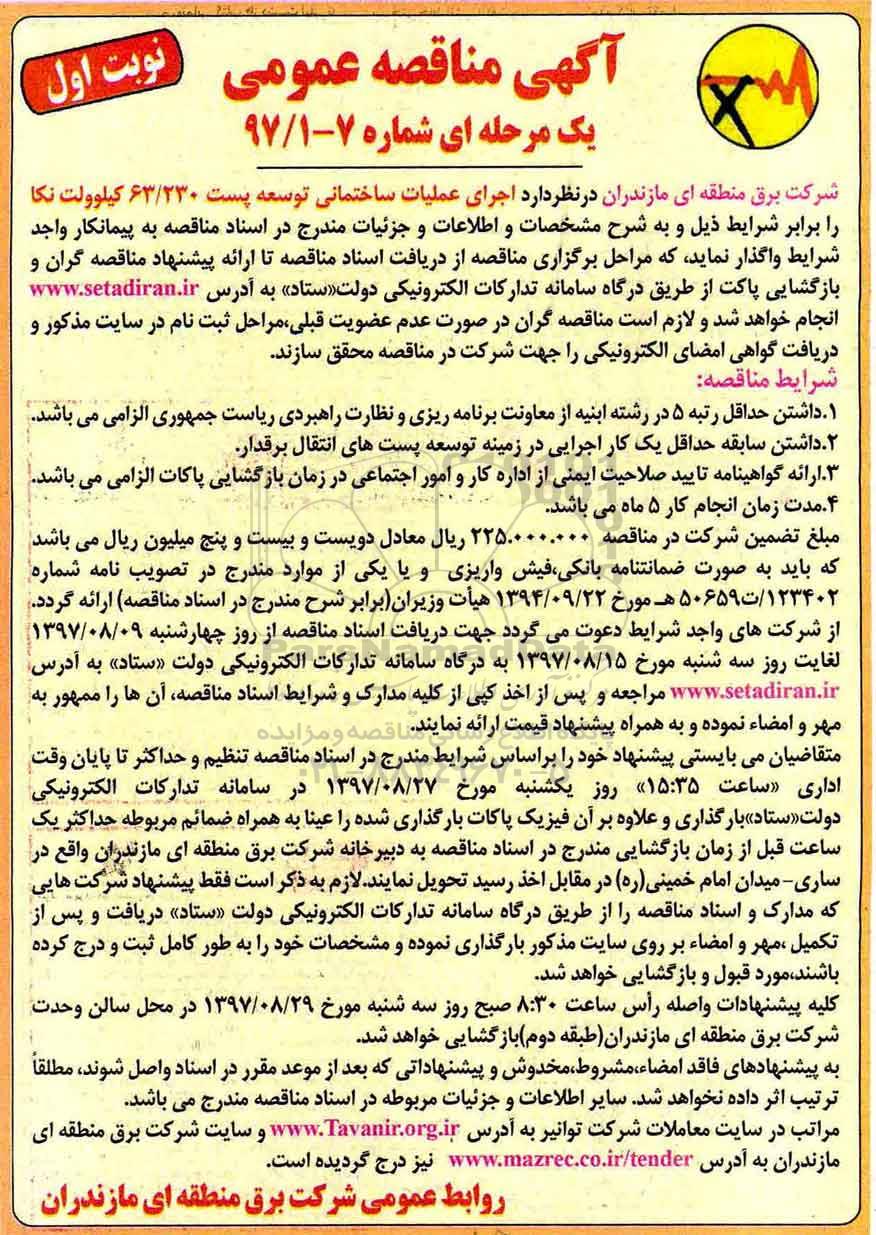 نوبت اول
آگهی مناقصه عمومی
یک مرحله ای شماره ۷-۹۷/۱
شرکت برق منطقه ای مازندران درنظردارد اجرای عملیات ساختمانی توسعه پست ۶۳/۲۳۰ کیلوولت نکا
را برابر شرایط ذیل و به شرح مشخصات و اطلاعات و جزئیات مندرج در اسناد مناقصه به پیمانکار واجد
شرایط واگذار نماید، که مراحل برگزاری مناقصه از دریافت اسناد مناقصه تا ارائه پیشنهاد مناقصه گران و
بازگشایی پاکت از طریق درگاه سامانه تدارکات الکترونیکی دولت«ستاد» به آدرس www.setadiran.ir
انجام خواهد شد و لازم است مناقصه گران در صورت عدم عضویت قبلی،مراحل ثبت نام در سایت مذکور و
دریافت گواهی امضای الکترونیکی را جهت شرکت در مناقصه محقق سازند.
شرایط مناقصه:
۱.داشتن حداقل رتبه ۵ در رشته ابنیه از معاونت برنامه ریزی و نظارت راهبردی ریاست جمهوری الزامی می باشد.
۲.داشتن سابقه حداقل یک کار اجرایی در زمینه توسعه پست های انتقال برقدار.
۳.ارائه گواهینامه تایید صلاحیت ایمنی از اداره کار و امور اجتماعی در زمان بازگشایی پاکات الزامی می باشد.
۴.مدت زمان انجام کار ۵ ماه می باشد.
مبلغ تضمین شرکت در مناقصه ۲۲۵.۰۰۰.۰۰۰ ریال معادل دویست و بیست و پنج میلیون ریال می باشد
که باید به صورت ضمانتنامه بانکی،فیش واریزی و یا یکی از موارد مندرج در تصویب نامه شماره
۱۲۳۴۰۲/ت۵۰۶۵۹ هـ مورخ ۱۳۹۴/۰۹/۲۲ هیأت وزیران(برابر شرح مندرج در اسناد مناقصه) ارائه گردد.
از شرکت های واجد شرایط دعوت می گردد جهت دریافت اسناد مناقصه از روز چهارشنبه ۱۳۹۷/۰۸/۰۹
لغایت روز سه شنبه مورخ ۱۳۹۷/۰۸/۱۵ به درگاه سامانه تدارکات الکترونیکی دولت «ستاد» به آدرس
www.setadiran.ir مراجعه و پس از اخذ کپی از کلیه مدارک و شرایط اسناد مناقصه، آن ها را ممهور به
مهر و امضاء نموده و به همراه پیشنهاد قیمت ارائه نمایند.
متقاضیان می بایستی پیشنهاد خود را براساس شرایط مندرج در اسناد مناقصه تنظیم و حداکثر تا پایان وقت
اداری «ساعت ۱۵:۳۵» روز یکشنبه مورخ ۱۳۹۷/۰۸/۲۷ در سامانه تدارکات الکترونیکی
دولت«ستاد»بارگذاری و علاوه بر آن فیزیک پاکات بارگذاری شده را عینا به همراه ضمائم مربوطه حداکثر یک
ساعت قبل از زمان بازگشایی مندرج در اسناد مناقصه به دبیرخانه شرکت برق منطقه ای مازندران واقع در
ساری-میدان امام خمینی(ره) در مقابل اخذ رسید تحویل نمایند.لازم به ذکر است فقط پیشنهاد شرکت هایی
که مدارک و اسناد مناقصه را از طریق درگاه سامانه تدارکات الکترونیکی دولت «ستاد» دریافت و پس از
تکمیل ،مهر و امضاء بر روی سایت مذکور بارگذاری نموده و مشخصات خود را به طور کامل ثبت و درج کرده
باشند،مورد قبول و بازگشایی خواهد شد.
کلیه پیشنهادات واصله رأس ساعت ۸:۳۰ صبح روز سه شنبه مورخ ۱۳۹۷/۰۸/۲۹ در محل سالن وحدت
شرکت برق منطقه ای مازندران(طبقه دوم)بازگشایی خواهد شد.
به پیشنهادهای فاقد امضاء،مشروط،مخدوش و پیشنهاداتی که بعد از موعد مقرر در اسناد واصل شوند، مطلقاً
ترتیب اثر داده نخواهد شد. سایر اطلاعات و جزئیات مربوطه در اسناد مناقصه مندرج می باشد.
مراتب در سایت معاملات شرکت توانیر به آدرس www.Tavanir.org.ir و سایت شرکت برق منطقه ای
مازندران به آدرس www.mazrec.co.ir/tender نیز درج گردیده است.
روابط عمومی شرکت برق منطقه ای مازندران